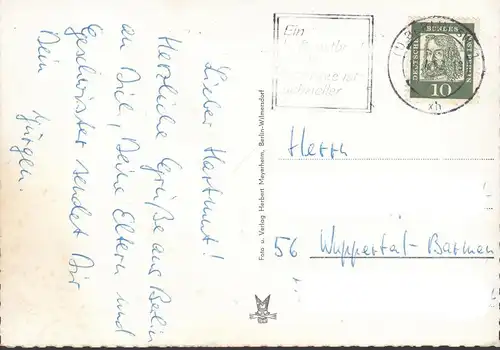 Lieber Hartmut!
Herzliche Grüße aus Berlin
an Dich, Deine Eltern und
Geschwister sendet Dir
Dein
Jürgen.
Foto u. Verlag Herbert Meyerheim, Berlin-Wilmersdorf
Ein
ist
schneller
DEUTSCHE BUNDESPOST BERLIN
10
xh
Herrn
56 Wuppertal-Barmen